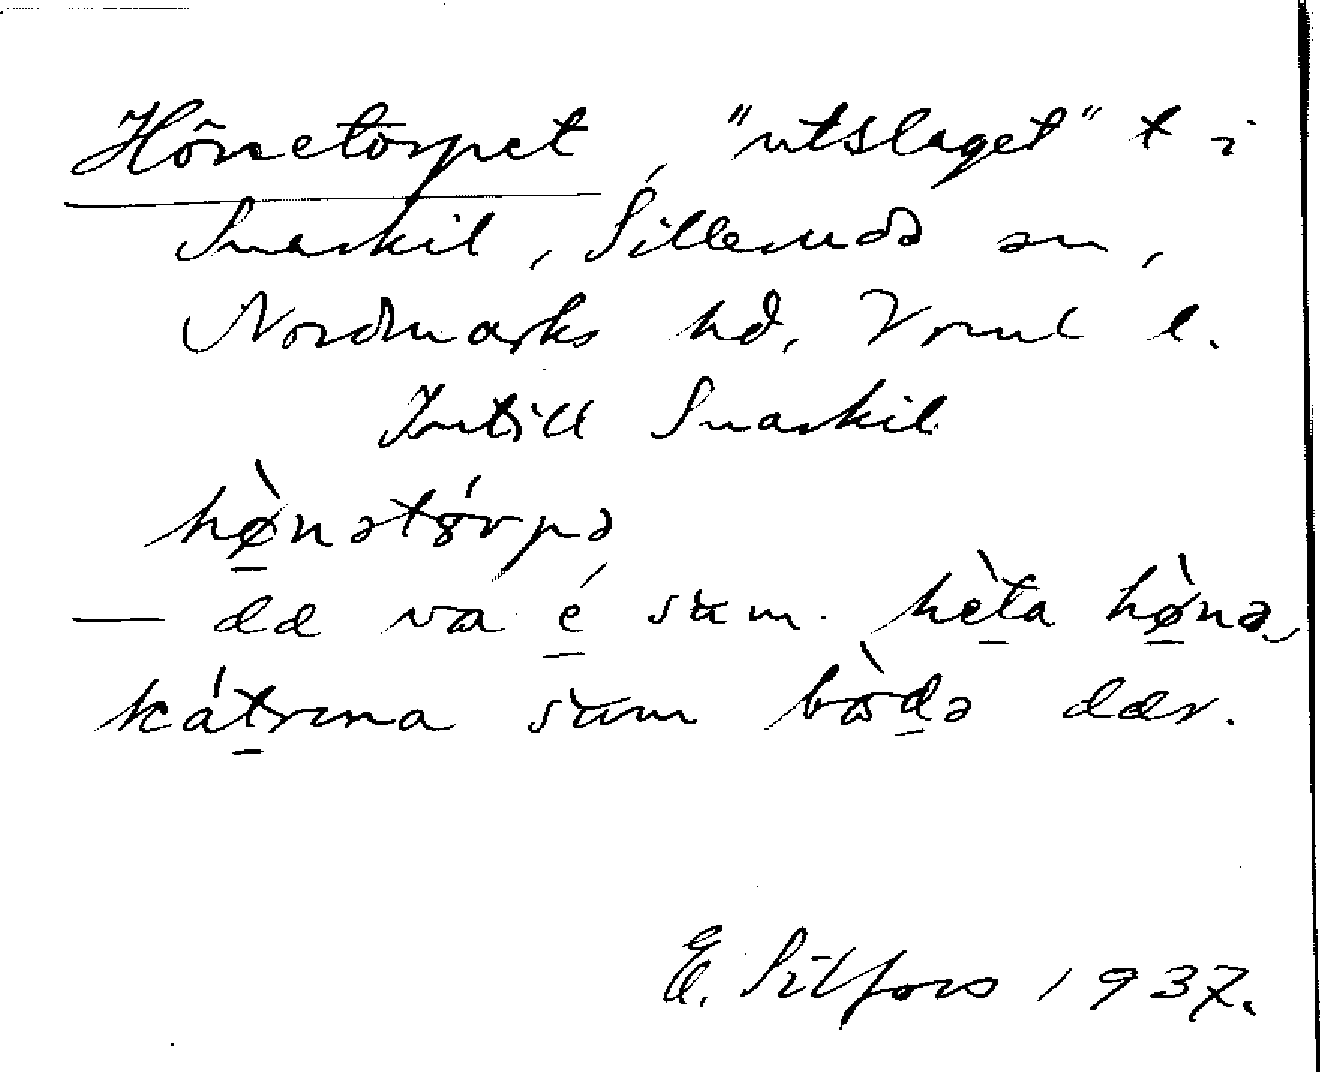 Hönetorpet, "utslaget" t i
Snarkil, Sillerudd sn,
Nordmarks hd, Vrml l.
Intill Snarkil
hø̱̀nətórpə
— dæ va é̱ sum. hè̱ta hø̱̀nə
ká̱trına sum bòḏə dær.
E. Silfors 1937.